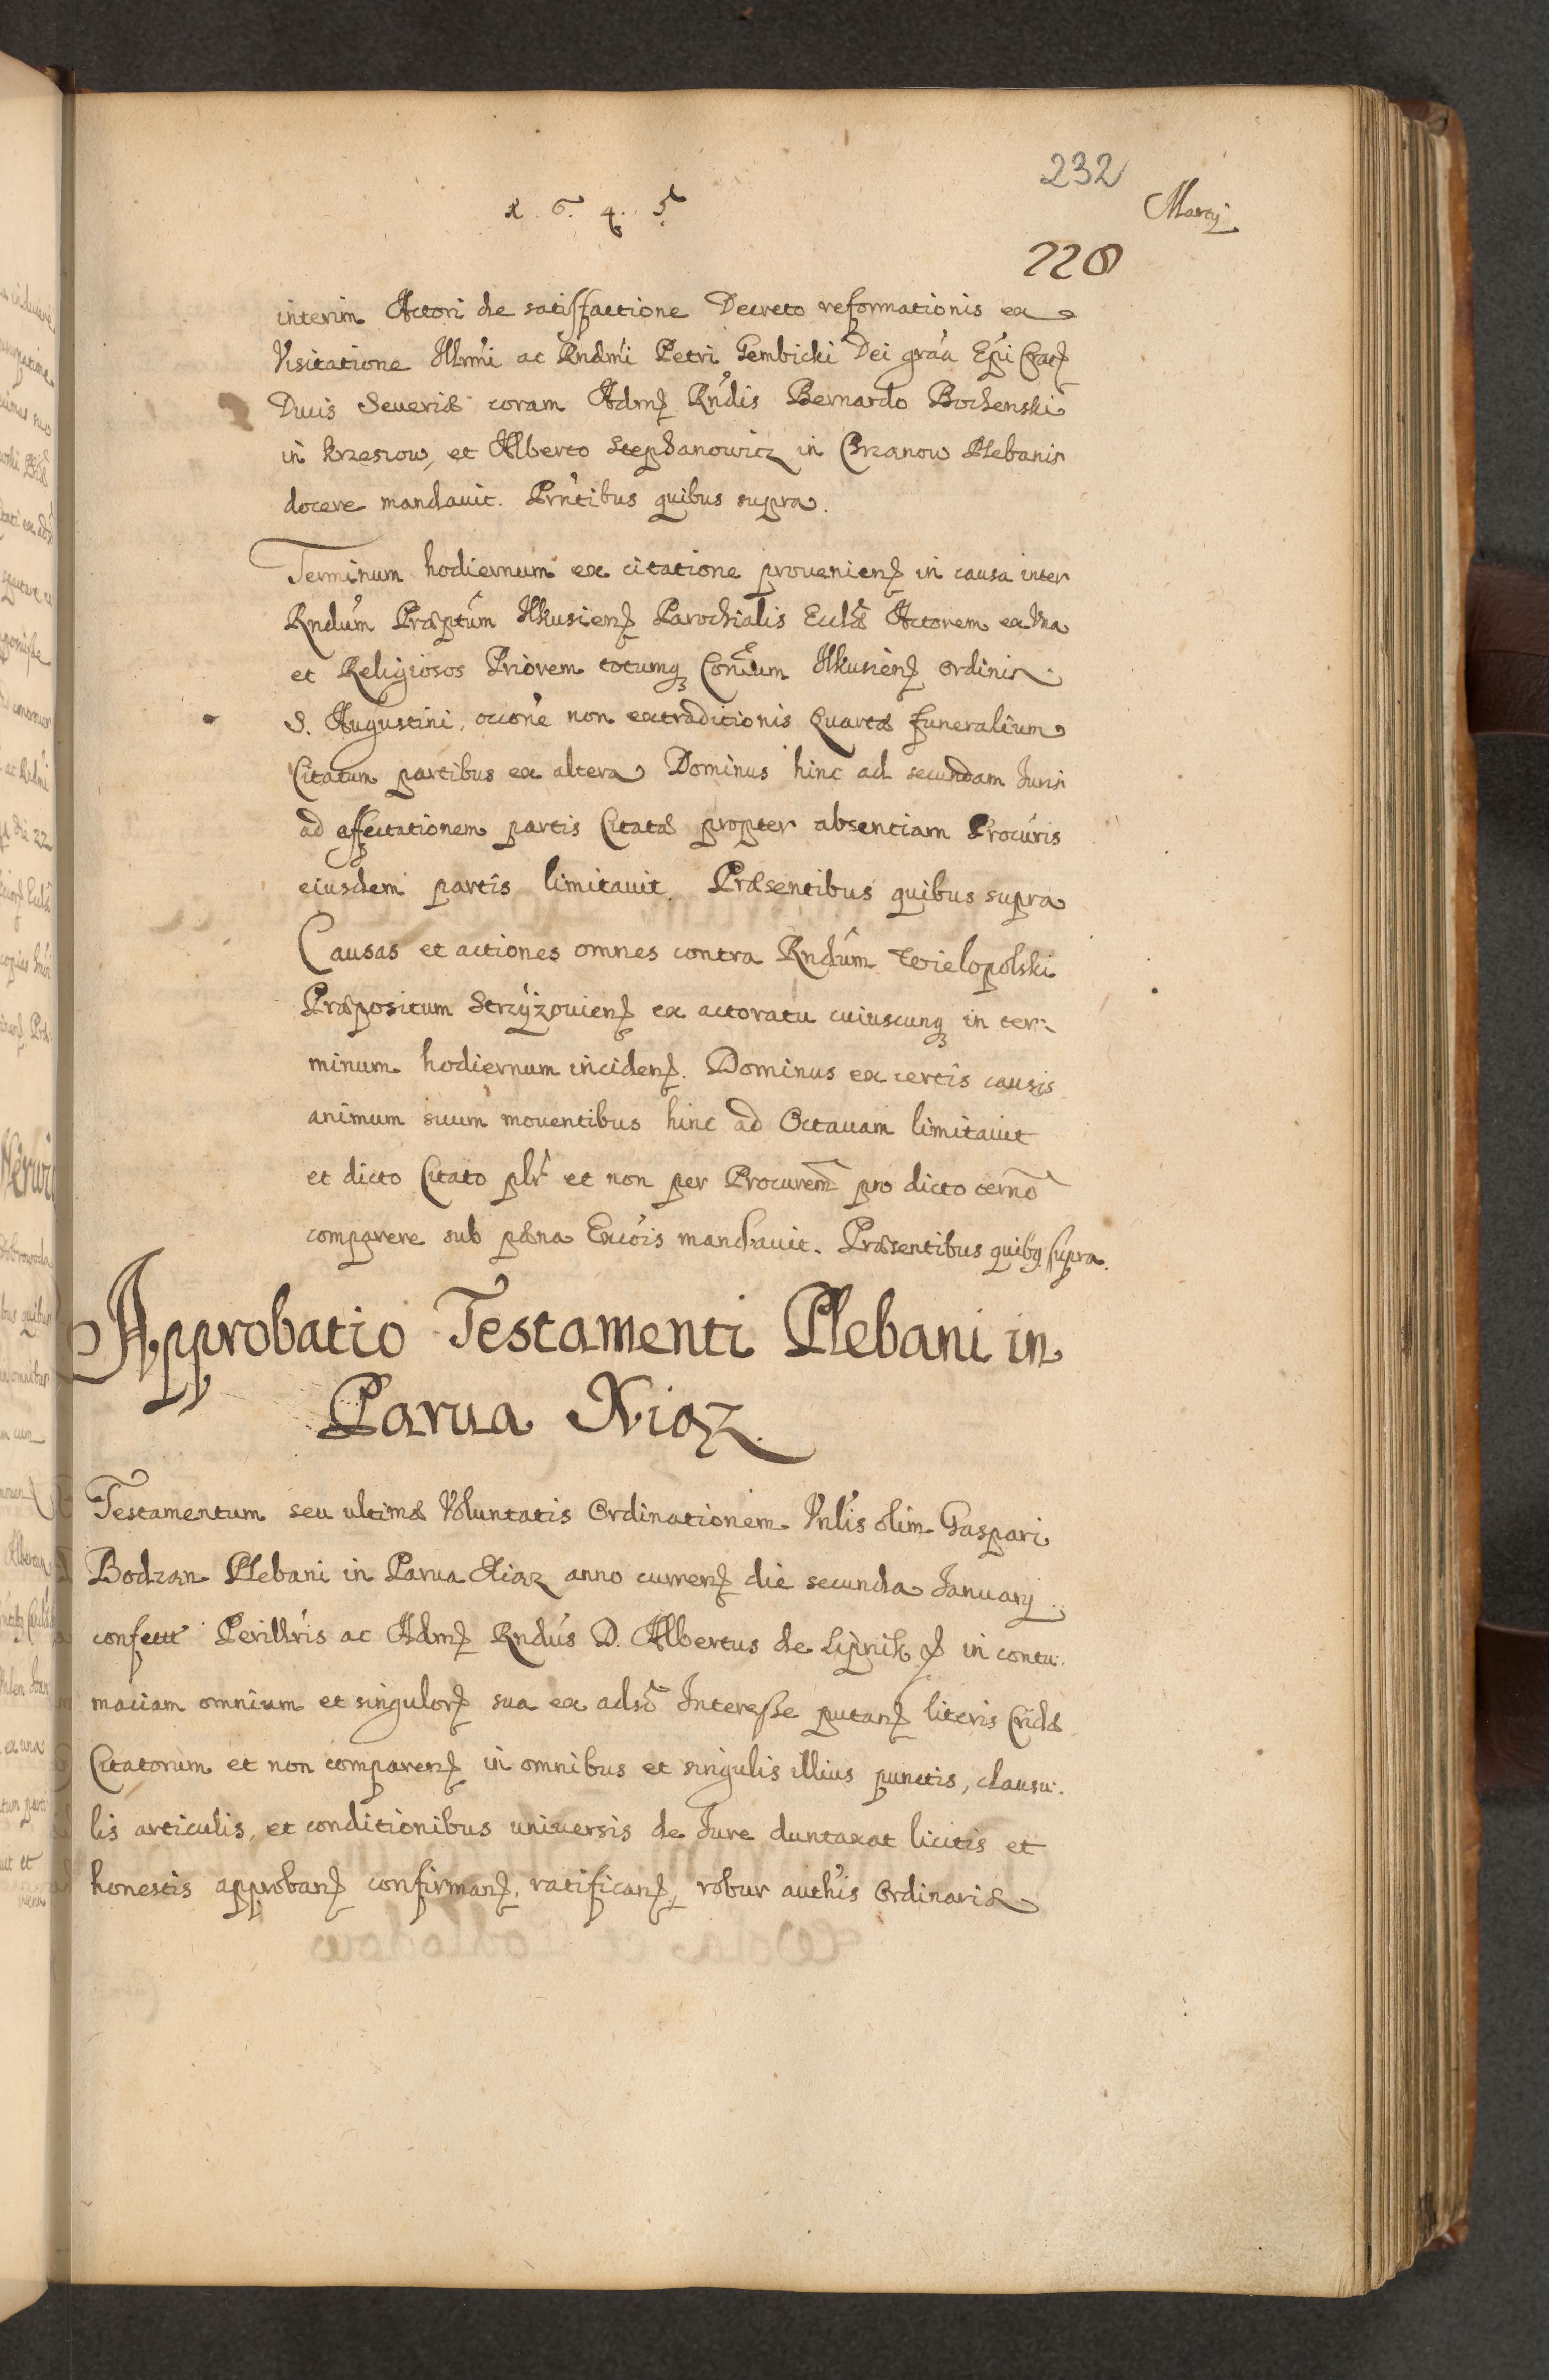 232
1 6. 4. 5
Marcij
220
interim Actori de satisffactione Decreto reformationis ex
Visitatione Illrmi ac Rndmi Petri Gembicki Dei gra'a Ep'i Crac
Ducis Seueriæ coram Adm Rndis Bernardo Bochenski
in Krzesow, et Alberto Stephanowicz in Chrzanow Plebanis
docere mandauit. Prn'tibus quibus supra.
Terminum hodiernum ex citatione prouenien in causa inter
Rndum Præptum Ilkusien Parochialis Eccl'æ Actorem ex una
et Religiosos Priorem totumq Conuum Ilkusien ordinis
S. Augustini, occone non extraditionis Quartæ funeralium
Citatum partibus ex altera Dominus hinc ad secundam Juris
ad affectationem partis Citatæ propter absentiam Procuris
eiusdem partis limitauit. Præsentibus quibus supra
Causas et actiones omnes contra Rndum Wielopolski
Præpositum Strzyzouien ex actoratu cuiuscunq in ter:
minum hodiernum inciden. Dominus ex certis causis
animum suum mouentibus hinc ad Octauam limitauit
et dicto Citato plr et non per Procurem pro dicto termo
comparere sub pæna Excois mandauit. Præsentibus quibq supra.
Approbatio Testamenti Plebani in
Parua Xiąz.
Testamentum seu ultimæ Voluntatis Ordinationem Vnlis olim Gaspari
Bodzan Plebani in Parua Xiąz anno curren die secunda Januarij
confectt Perillris ac Adm Rndus D. Albertus de Lipnik in contu:
maciam omnium et singulor sua ex adso Interesse putan literis Cridæ
Citatorum et non comparen in omnibus et singulis illius punctis, clausu:
lis articulis, et conditionibus uniuersis de Jure duntaxat licitis et
honestis approban confirman, ratifican, robur auth'is Ordinariæ